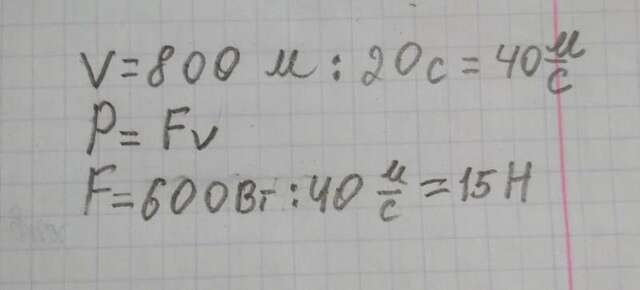 V=800 м : 20с = 40 м/с
P= Fv
F=600Вт : 40 м/с = 15 Н